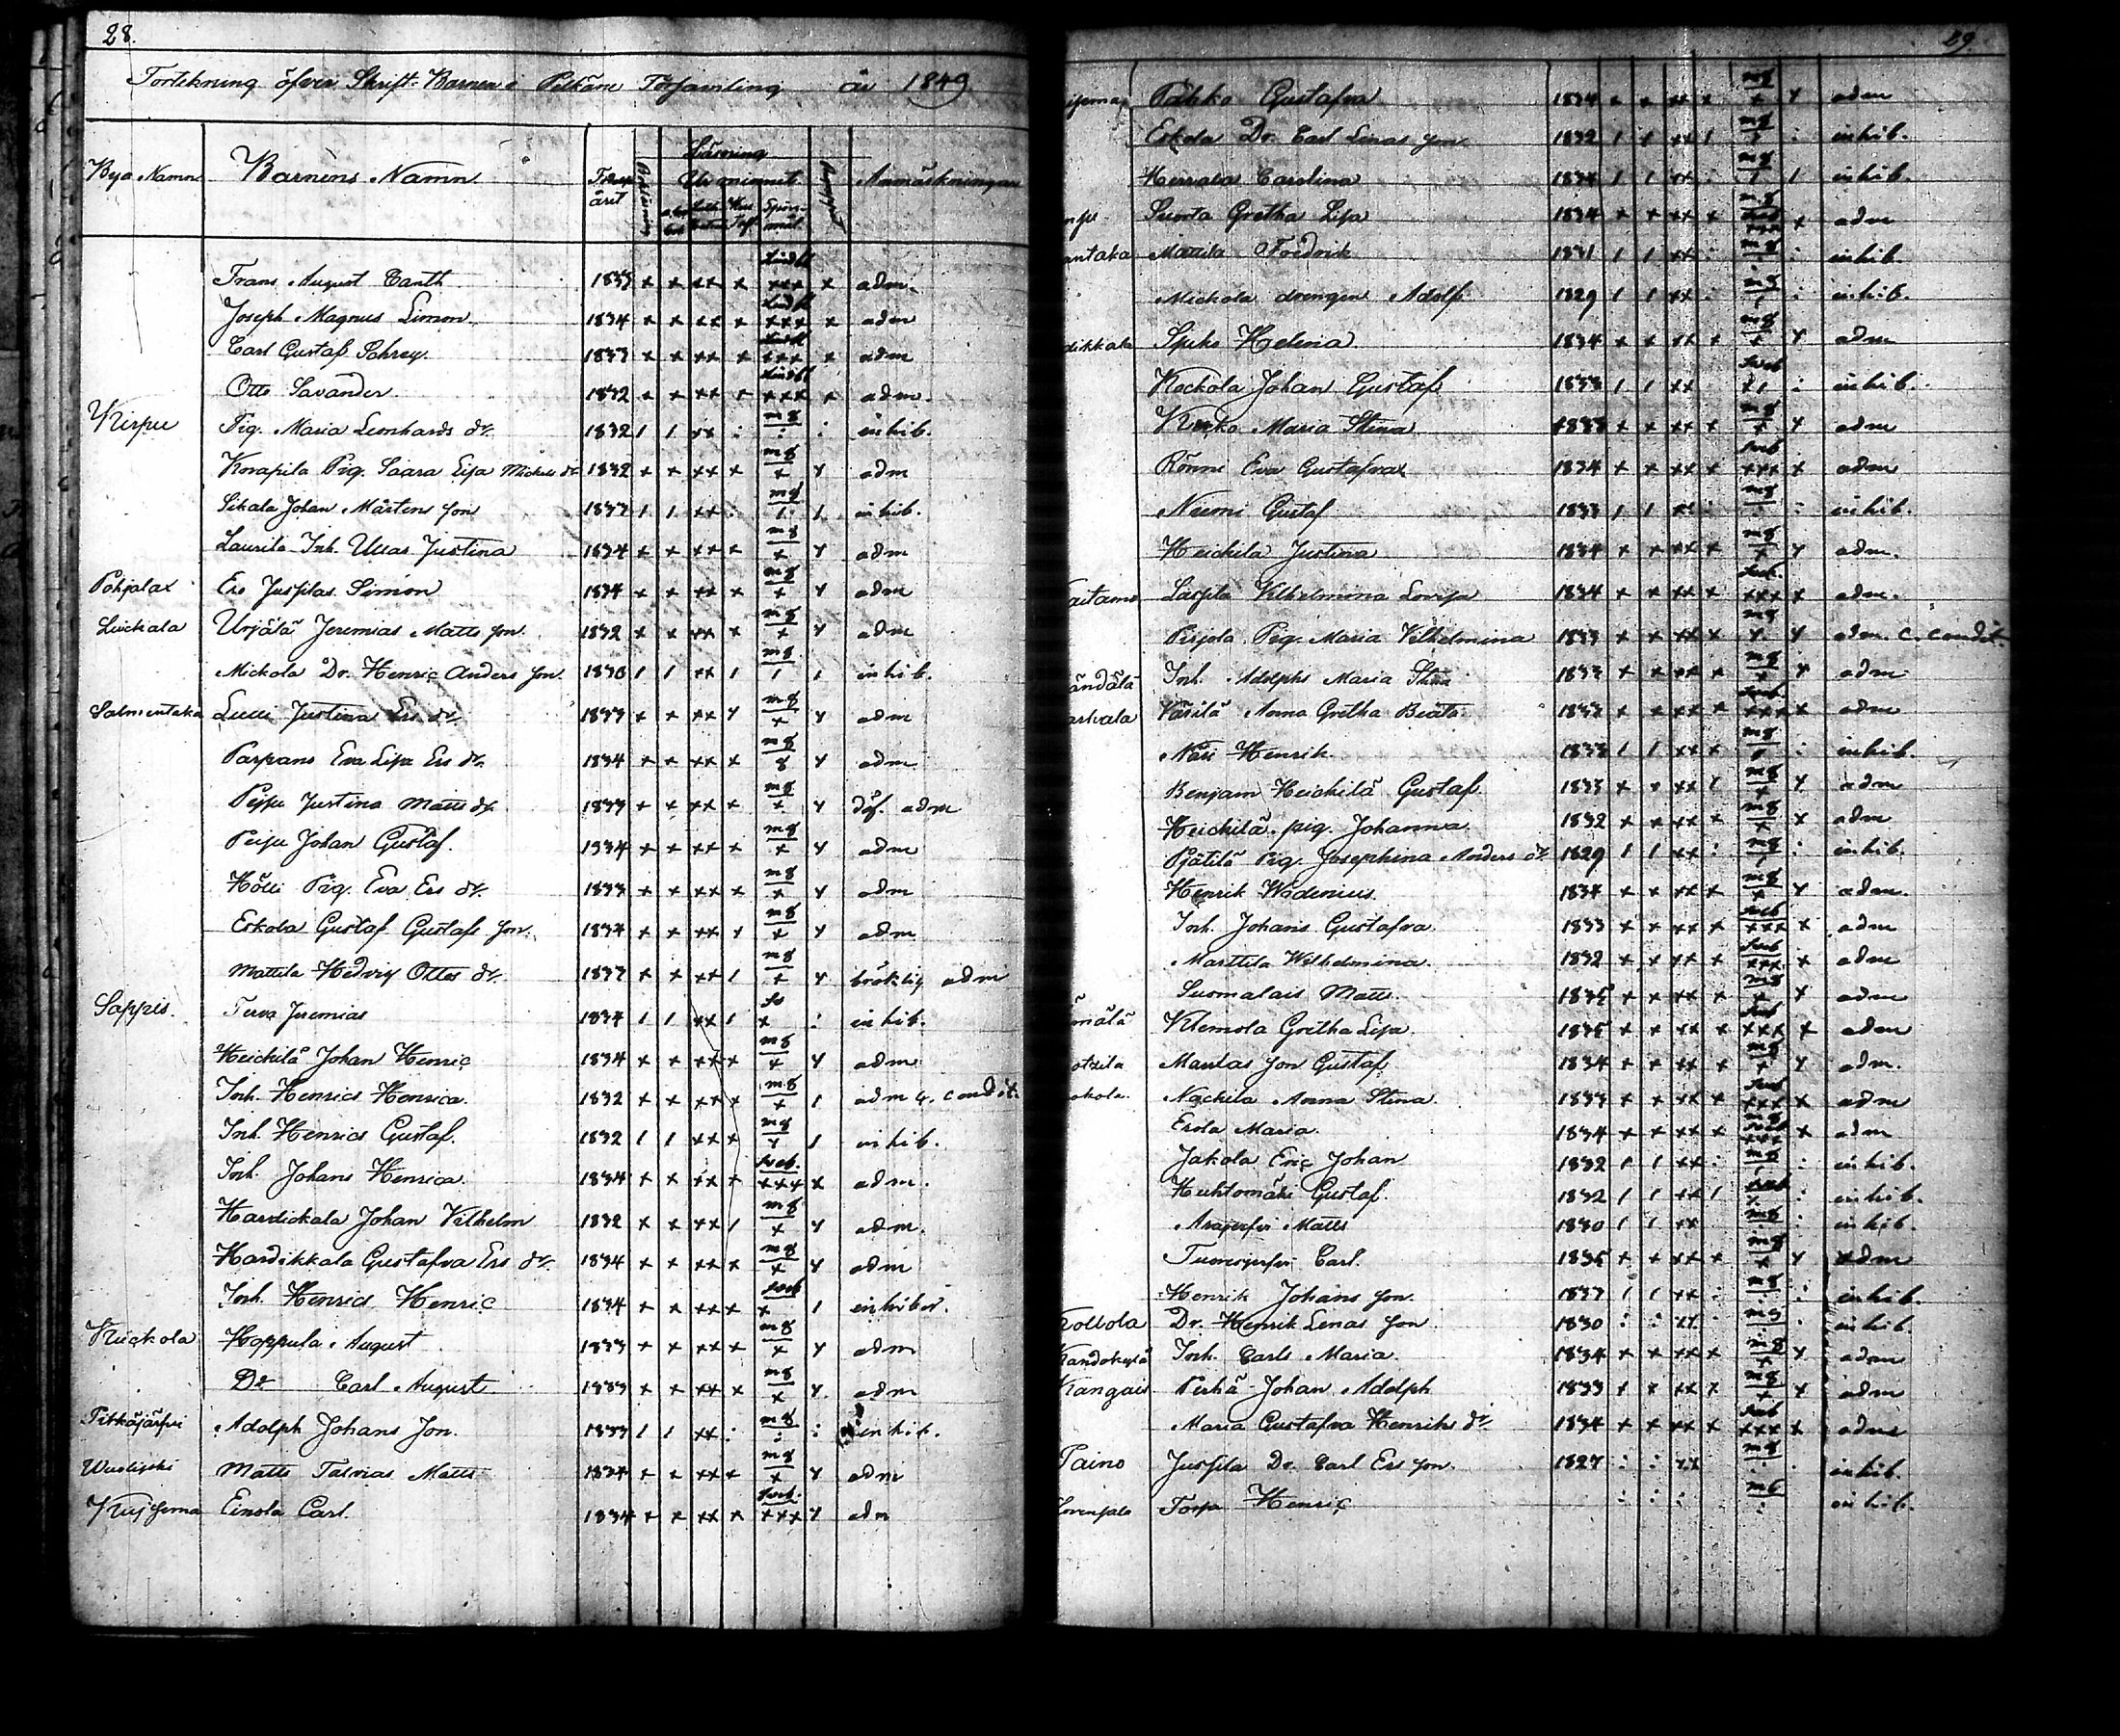 28.
Förtekning öfver Skrift-Barnen i Pelkäne Församling år 1849
Bya Namn Barnens Namn Födelse året Läsning Utominnet Anmärkningar
Frans August Canth 1833 x x xx x xxx x adm.
Joseph Magnus Limon 1834 x x xx x xxx x adm
Carl Gustaf Sohrey 1833 x x xx x xxx x adm
Otto Savander 1832 x x xx x xxx x adm.
Kirpu Pig. Maria Leonhards dr. 1832 / / xx : mg : : inhib.
Korapila Pig. Saara Lisa Mickels dr 1832 x x xx x mg x x adm
Sikala Johan Mårtens son 1833 / / xx : mg / / inhib.
Laurila Inh. Ullas Justina 1834 x x xx x mg x x adm
Pohjalax Ers Jussilas Simon 1834 x x xx x mg x x adm
Luickala Urjälä Jeremias Matts son 1832 x x xx x mg x x adm
Mickola Dr. Henric Anders son. 1830 / / xx / mg / / inhib.
Salmentaka Lucci Justina Ers dr. 1833 x x xx x mg x x adm
Parpans Eva Lisa Ers dr. 1834 x x xx x mg x adm
Peiju Justina Matts dr 1833 x x xx x mg x x döf. adm
Peiju Johan Gustaf. 1834 x x xx x mg x x adm
Hölli Pig. Eva Ers dr. 1833 x x xx x mg x x adm
Eskola Gustaf Gustafs son. 1834 x x xx x mg x x adm
Mattila Hedvig Ottos dr. 1833 x x xx / mg x x bräcklig adm
Sappis. Terva Jeremias 1834 / / xx / x : inhib.
Heickilä Johan Henric 1834 x x xx x mg x x adm
Inh. Henrics Henrica. 1832 x x xx x mg x / adm c. condit.
Inh. Henrics Gustaf. 1832 / / xx x mg x / inhib.
Inh. Johans Henrica. 1834 x x xx x sveb. xxx x adm.
Hardickala Johan Vilhelm 1832 x x xx / mg x x adm.
Hardikkala Gustafva Ers dr. 1834 x x xx x mg x x adm
Inh. Henrics Henric 1834 x x xx x sveb x / inhiber.
Kuckola Hoppula August 1833 x x xx x mg x x adm
Do Carl August 1833 x x xx x mg x x adm
Pitkäjärfvi Adolph Johans Son. 1833 / / xx : mg : : inhib.
Matts Talvias Matts 1834 x x xx x mg x x adm
Einola Carl. 1834 x x xx x sveb. xxx x adm
29
Pähko Gustafva 1834 x x xx x mg x x adm
Eskola Dr. Carl Lenas son 1832 / / xx / mg x : inhib.
Herrala Carolina 1834 / / xx : mg / / inhib.
Suorta Gretha Lisa 1834 x x xx x mg xxx x adm
antaka Mattila Fredrik 1831 / / xx : mg : : inhib.
Mickola drengen Adolf 1829 / / xx : mg : : inhib.
dikkala Spuho Helena 1834 x x xx x mg x x adm
Kockola Johan Gustaf 1833 / / xx sveb x/ : inhib.
Maria Stina 1833 x x xx x mg x x adm
Rönni Eva Gustafva 1834 x x xx x sveb xxx x adm
Niemi Gustaf 1833 / / xx : mg : : inhib.
Heickila Justina 1834 x x xx x mg x x adm.
aitamo Laspila Vilhelmina Lovisa 1834 x x xx x sveb. xxx x adm.
Pirjola Pig. Maria Vilhelmina 1833 x x xx x mg x x adm. c. condit.
ändälä Inh. Adolphs Maria Stina 1833 x x xx x mg x x adm
Värilä Anna Gretha Beata 1833 x x xx x sveb. xxx x adm
Näri Henrik 1833 / / xx x mg : inhib.
Benjam Heickilä Gustaf 1833 x x xx / mg x x adm
Heickilä pig. Johanna 1832 x x xx x mg x x adm
Pjätilä Pig. Josephina Anders dr 1829 / / xx : mg / : inhib.
Henrik Wadenius 1834 x x xx x mg x x adm.
Inh. Johans Gustafva 1833 x x xx x sveb xxx x adm
Marttila Wilhelmina. 1832 x x xx x sveb xxx x adm
Suomalais Matts. 1835 x x xx x mg x x adm
mälä Klemola Gretha Lisa. 1835 x x xx x sveb xxx x adm
otzila Mantas son Gustaf 1834 x x xx x mg x x adm.
okola. Nackila Anna Stina 1833 x x xx x sveb xxx x adm
Erola Maria. 1834 x x xx x sveb xxx x adm
Jakola Eric Johan 1832 / / xx : mg / : inhib.
Huhtomäki Gustaf. 1832 / / xx / sveb x : inhib.
Arajerfvi Matts 1830 / / xx mg : inhib.
Tuomijerfvi Carl. 1835 x x xx x mg x x adm
Henrik Johans son. 1833 / / xx : mg : : inhib.
Dr. Henrik Lenas son 1830 : : xx mg : inhib.
Inh. Carls Maria. 1834 x x xx x mg x x adm
Kangais Perhä Johan Adolph 1833 x x xx x mg x x adm
Maria Gustafva Henriks dr. 1834 x x xx x sveb xxx x adm
Taino Jussila Dr. Carl Ers son. 1827 : : xx mg : . inhib.
Torpa Henric : : : mg : inhib.